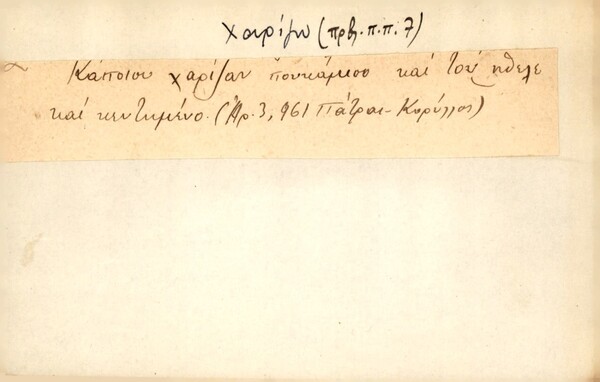 χαρίζω (πρβ. π.π. 7)
Κάποιου χαρίζαν πουκάμισο καί τού ήθελε
καί κεντημένο. (Αρ. 3, 961 Πάτραι - Κορύλλος)